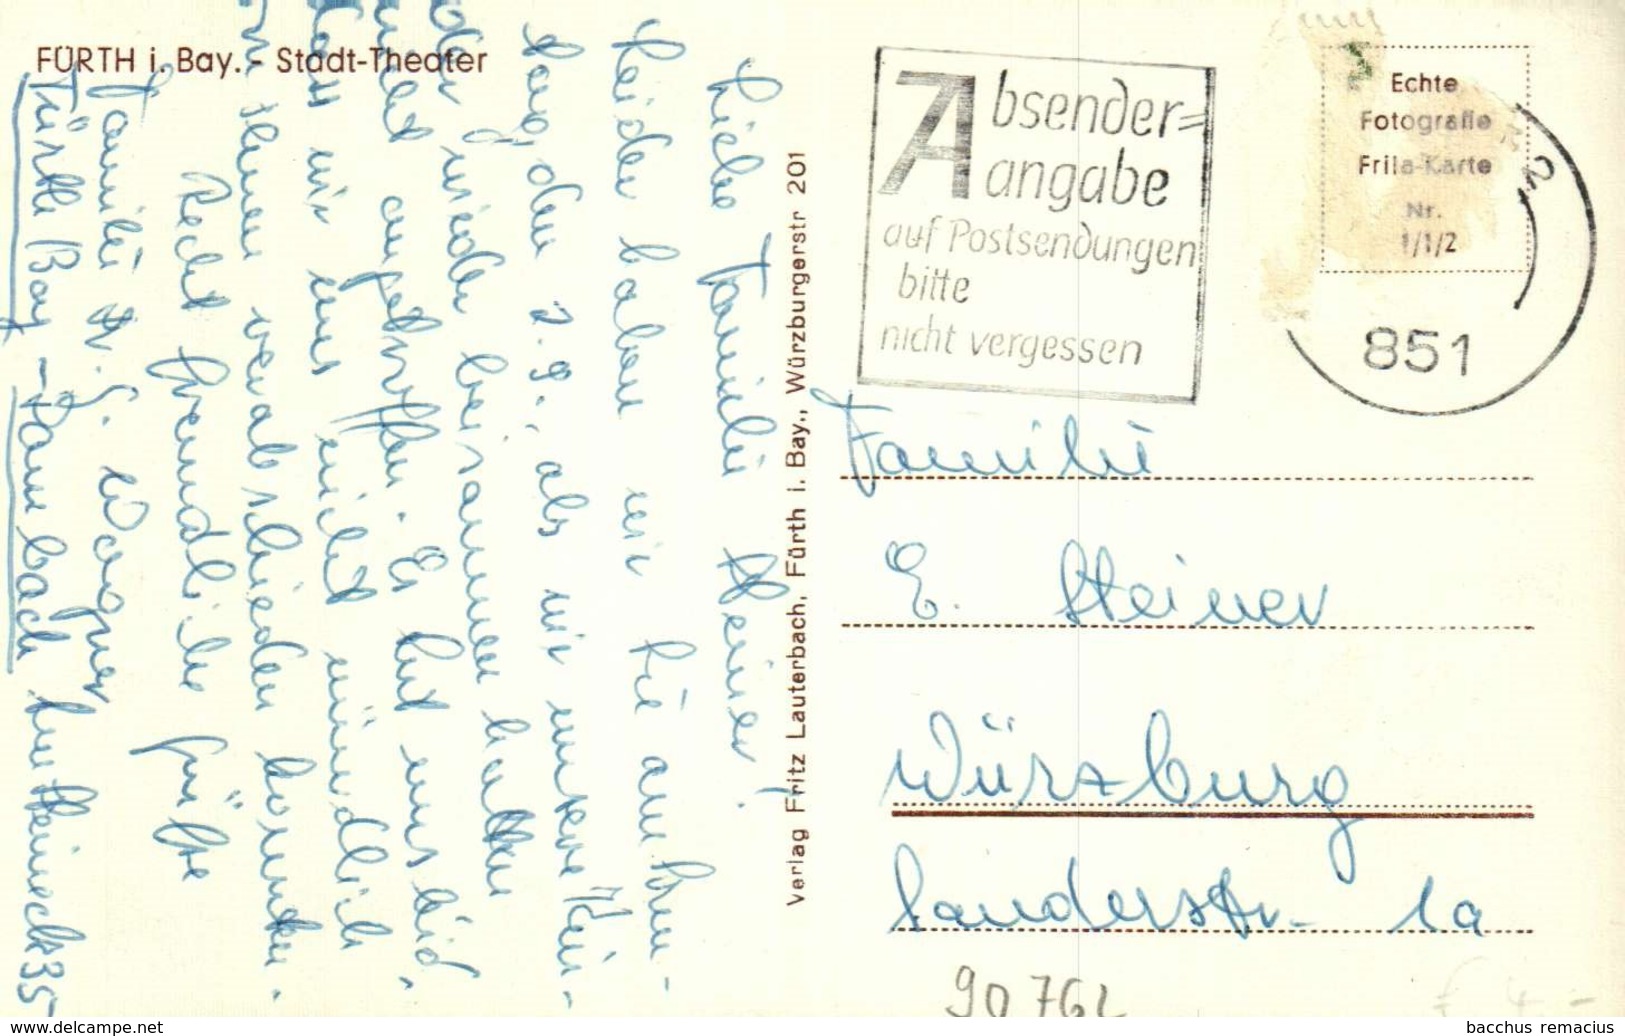 FÜRTH i. Bay. - Stadt-Theater
Liebe Familie Steiner!
Leider haben wir Sie am Sonn-
tag, den 2.9., als wir unsere Kin-
der wieder beisammen hatten
nicht angetroffen. Es tut uns leid,
dass wir uns nicht mündlich
von Ihnen verabschieden konnten.
Recht freundliche Grüße
Familie A. S. Wagner
Fürth Bay - Dambach Im Steineck 35
Verlag Fritz Lauterbach, Fürth i. Bay., Würzburgerstr 201
Absender=
angabe
auf Postsendungen
bitte
nicht vergessen
Echte
Fotografie
Frila-Karte
Nr.
1/1/2
851
Familie
E. Steiner
Würzburg
Sanderstr. 1a
90762
bacchus remacius